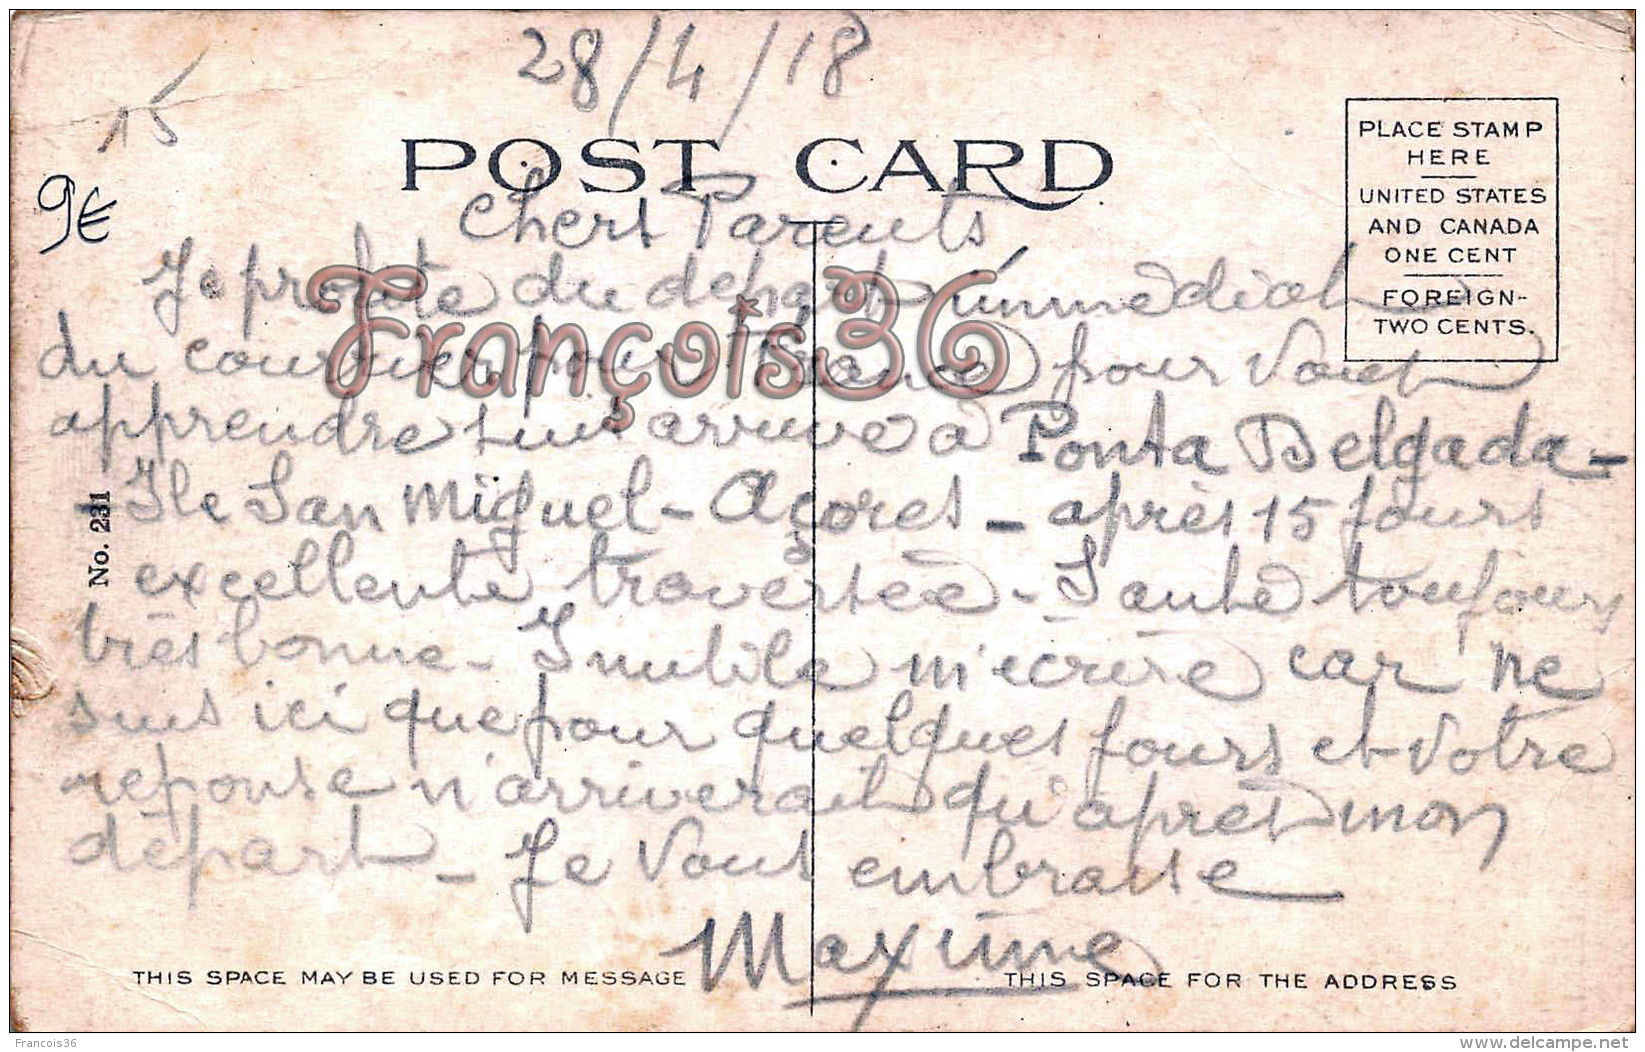 28/4/18
15
POST CARD
9€
PLACE STAMP
HERE
UNITED STATES
AND CANADA
ONE CENT
FOREIGN-
TWO CENTS.
Chers Parents
Je profite du départ immédiat
du courrier pour France pour vous
apprendre suis arrivé à Ponta Delgada -
Ile San Miguel - Açores - après 15 jours
excellente traversée - Santé toujours
très bonne - Inutile m'écrire car ne
suis ici que pour quelques jours et votre
reponse n'arriverait qu'après mon
départ - Je vous embrasse
Maxime
François36
No. 231
THIS SPACE MAY BE USED FOR MESSAGE
THIS SPACE FOR THE ADDRESS
Francois36
www.delcampe.net